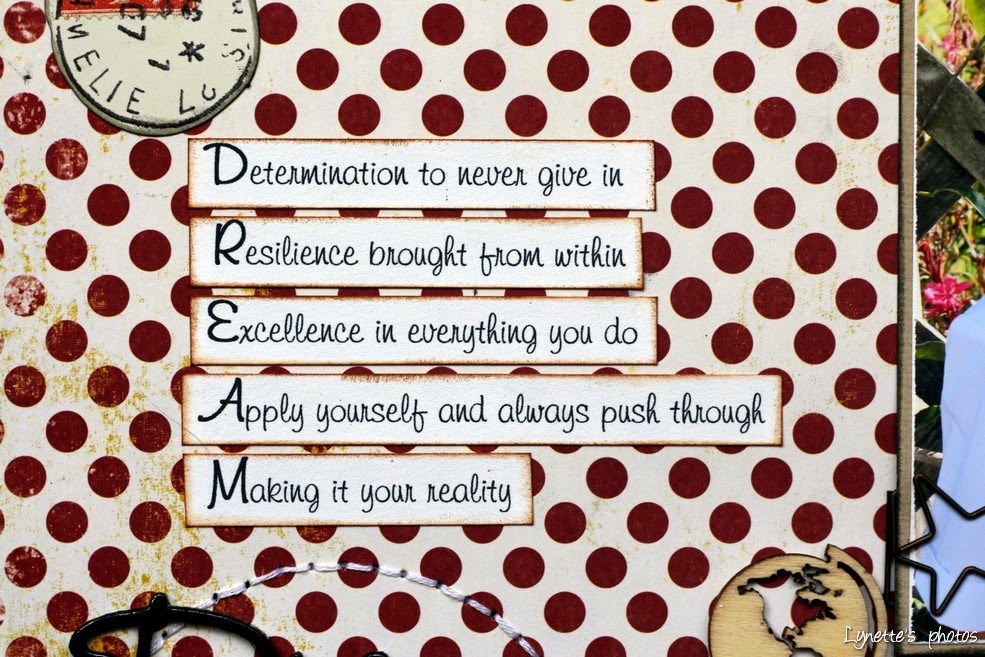 MELIE LO
Determination to never give in
Resilience brought from within
Excellence in everything you do
Apply yourself and always push through
Making it your reality
Lynette's photos